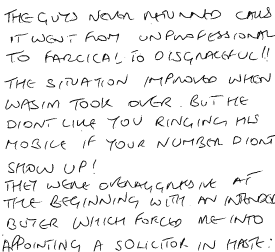 THE GUYS NEVER RETURNED CALLS
IT WENT FROM UNPROFESSIONAL
TO FARCICAL TO DISGRACEFUL!!
THE SITUATION IMPROVED WHEN
WASIM TOOK OVER. BUT HE
DIDNT LIKE YOU RINGING HIS
MOBILE IF YOUR NUMBER DIDNT
SHOW UP!
THEY WERE OVERAGGRESIVE AT
THE BEGINNING WITH AN INTENDED
BUYER WHICH FORCED ME INTO
APPOINTING A SOLICITOR IN HASTE.